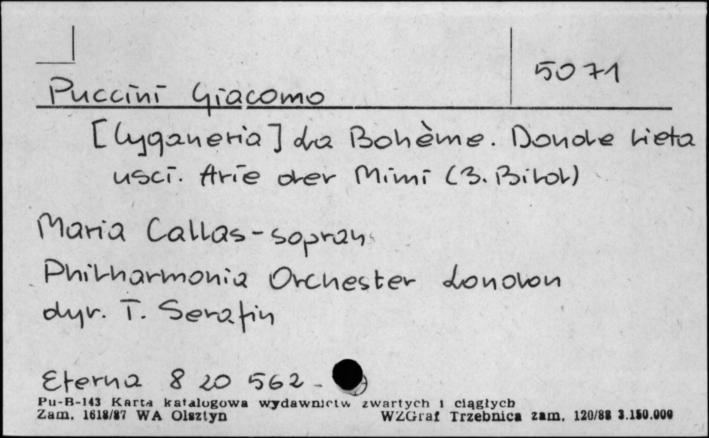 5071
Puccini Giacomo
[Cyganeria] La Bohème. Donde lieta
usci. Arie der Mimi (3. Bild)
Maria Callas - sopran
Philharmonia Orchester London
dyr. T. Serafin
Eterna 8 20 562-
Pu-B-143 Karta katalogowa wydawnictw zwartych i ciągłych
Zam. 1618/87 WA Olsztyn WZGraf Trzebnica zam. 120/88 3.150.000